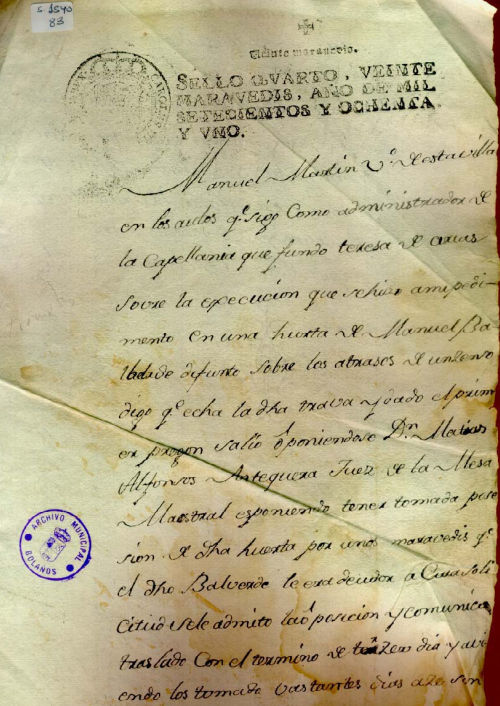 S. 1540
83
Veinte maravedis.
SELLO QVARTO, VEINTE
MARAVEDIS, AÑO DE MIL
SETECIENTOS Y OCHENTA
Y VNO.
Manuel Martin Vº. de esta villa
en los autos q.e sigo Como administrador de
la Capellania que fundo teresa de arias
sovre la execucion que se hizo a mi pedi-
mento en una huerta de Manuel Ba
lbede difunto sobre los atrasos de un zenso
digo q.e echa la dha trava y dado el prim
er pregon salio oponiendose Dn. Matias
Alfonso Antequera Juez de la Mesa
Maestral esponiendo tener tomada pose
sion de dha huerta por unos maravedis q.e
el dho Balverde le era deudor a Cuia soli
citud se le admitio la oposicion y comunico
traslado Con el termino de terzero dia y avi
endo los tomado vastantes dias aze sin
ARCHIVO MUNICIPAL
BOLAÑOS